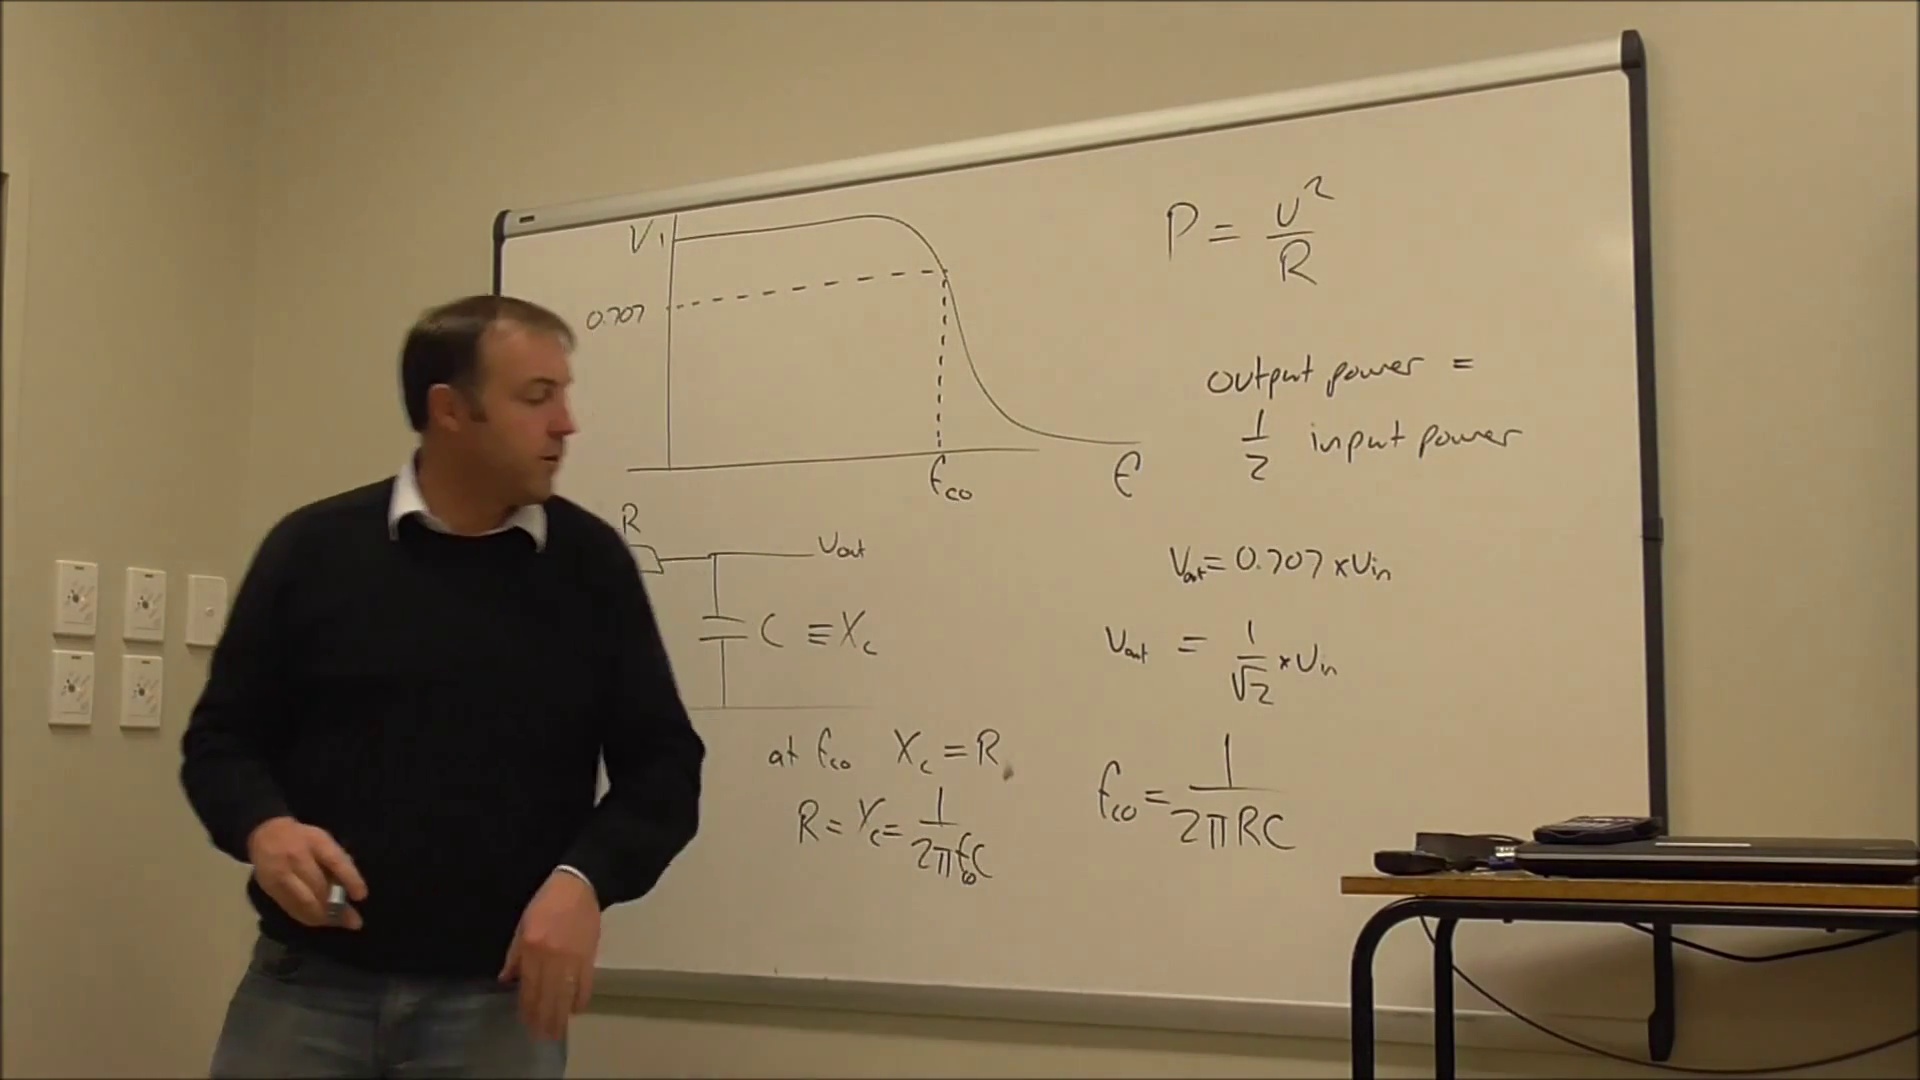 V 1
0.707
fco
f
R
Vout
C ≡ Xc
at fco Xc = R
R = Xc = 1/2πfcoC
P = V²/R
output power =
1/2 input power
Vout = 0.707 × Vin
Vout = 1/√2 × Vin
fco = 1/2πRC